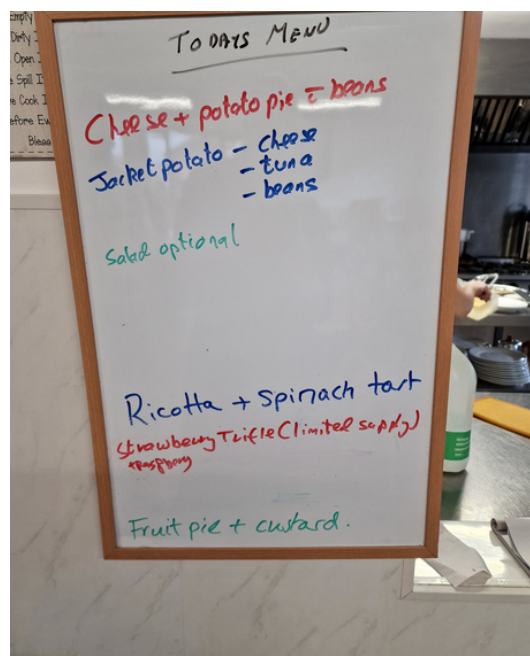 Empty
Dirty I
Open I
Spill I
Cook I
efore Ew
Bleas
TODAYS MENU
Cheese + potato pie c̄ beans
Jacket potato - cheese
- tuna
- beans
Salad optional
Ricotta + spinach tart
Strawberry Trifle (limited supply)
+ Raspberry
Fruit pie + custard.